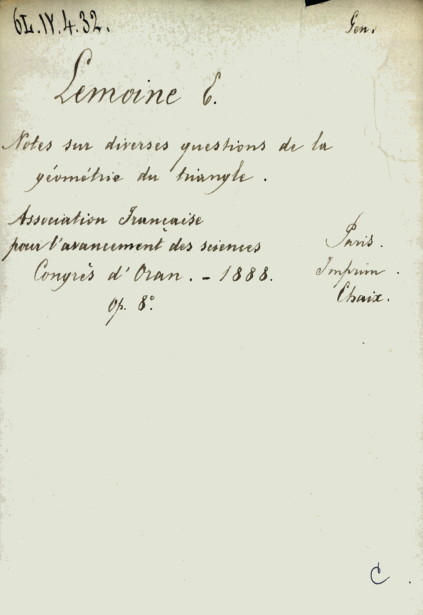 6L.IV.4.32.
Gen.
Lemoine E.
Notes sur diverses questions de la
géométrie du triangle.
Association Française
pour l'avancement des sciences
Congrès d'Oran. - 1888.
Op. 8°.
Paris.
Imprim.
Chaix.
C